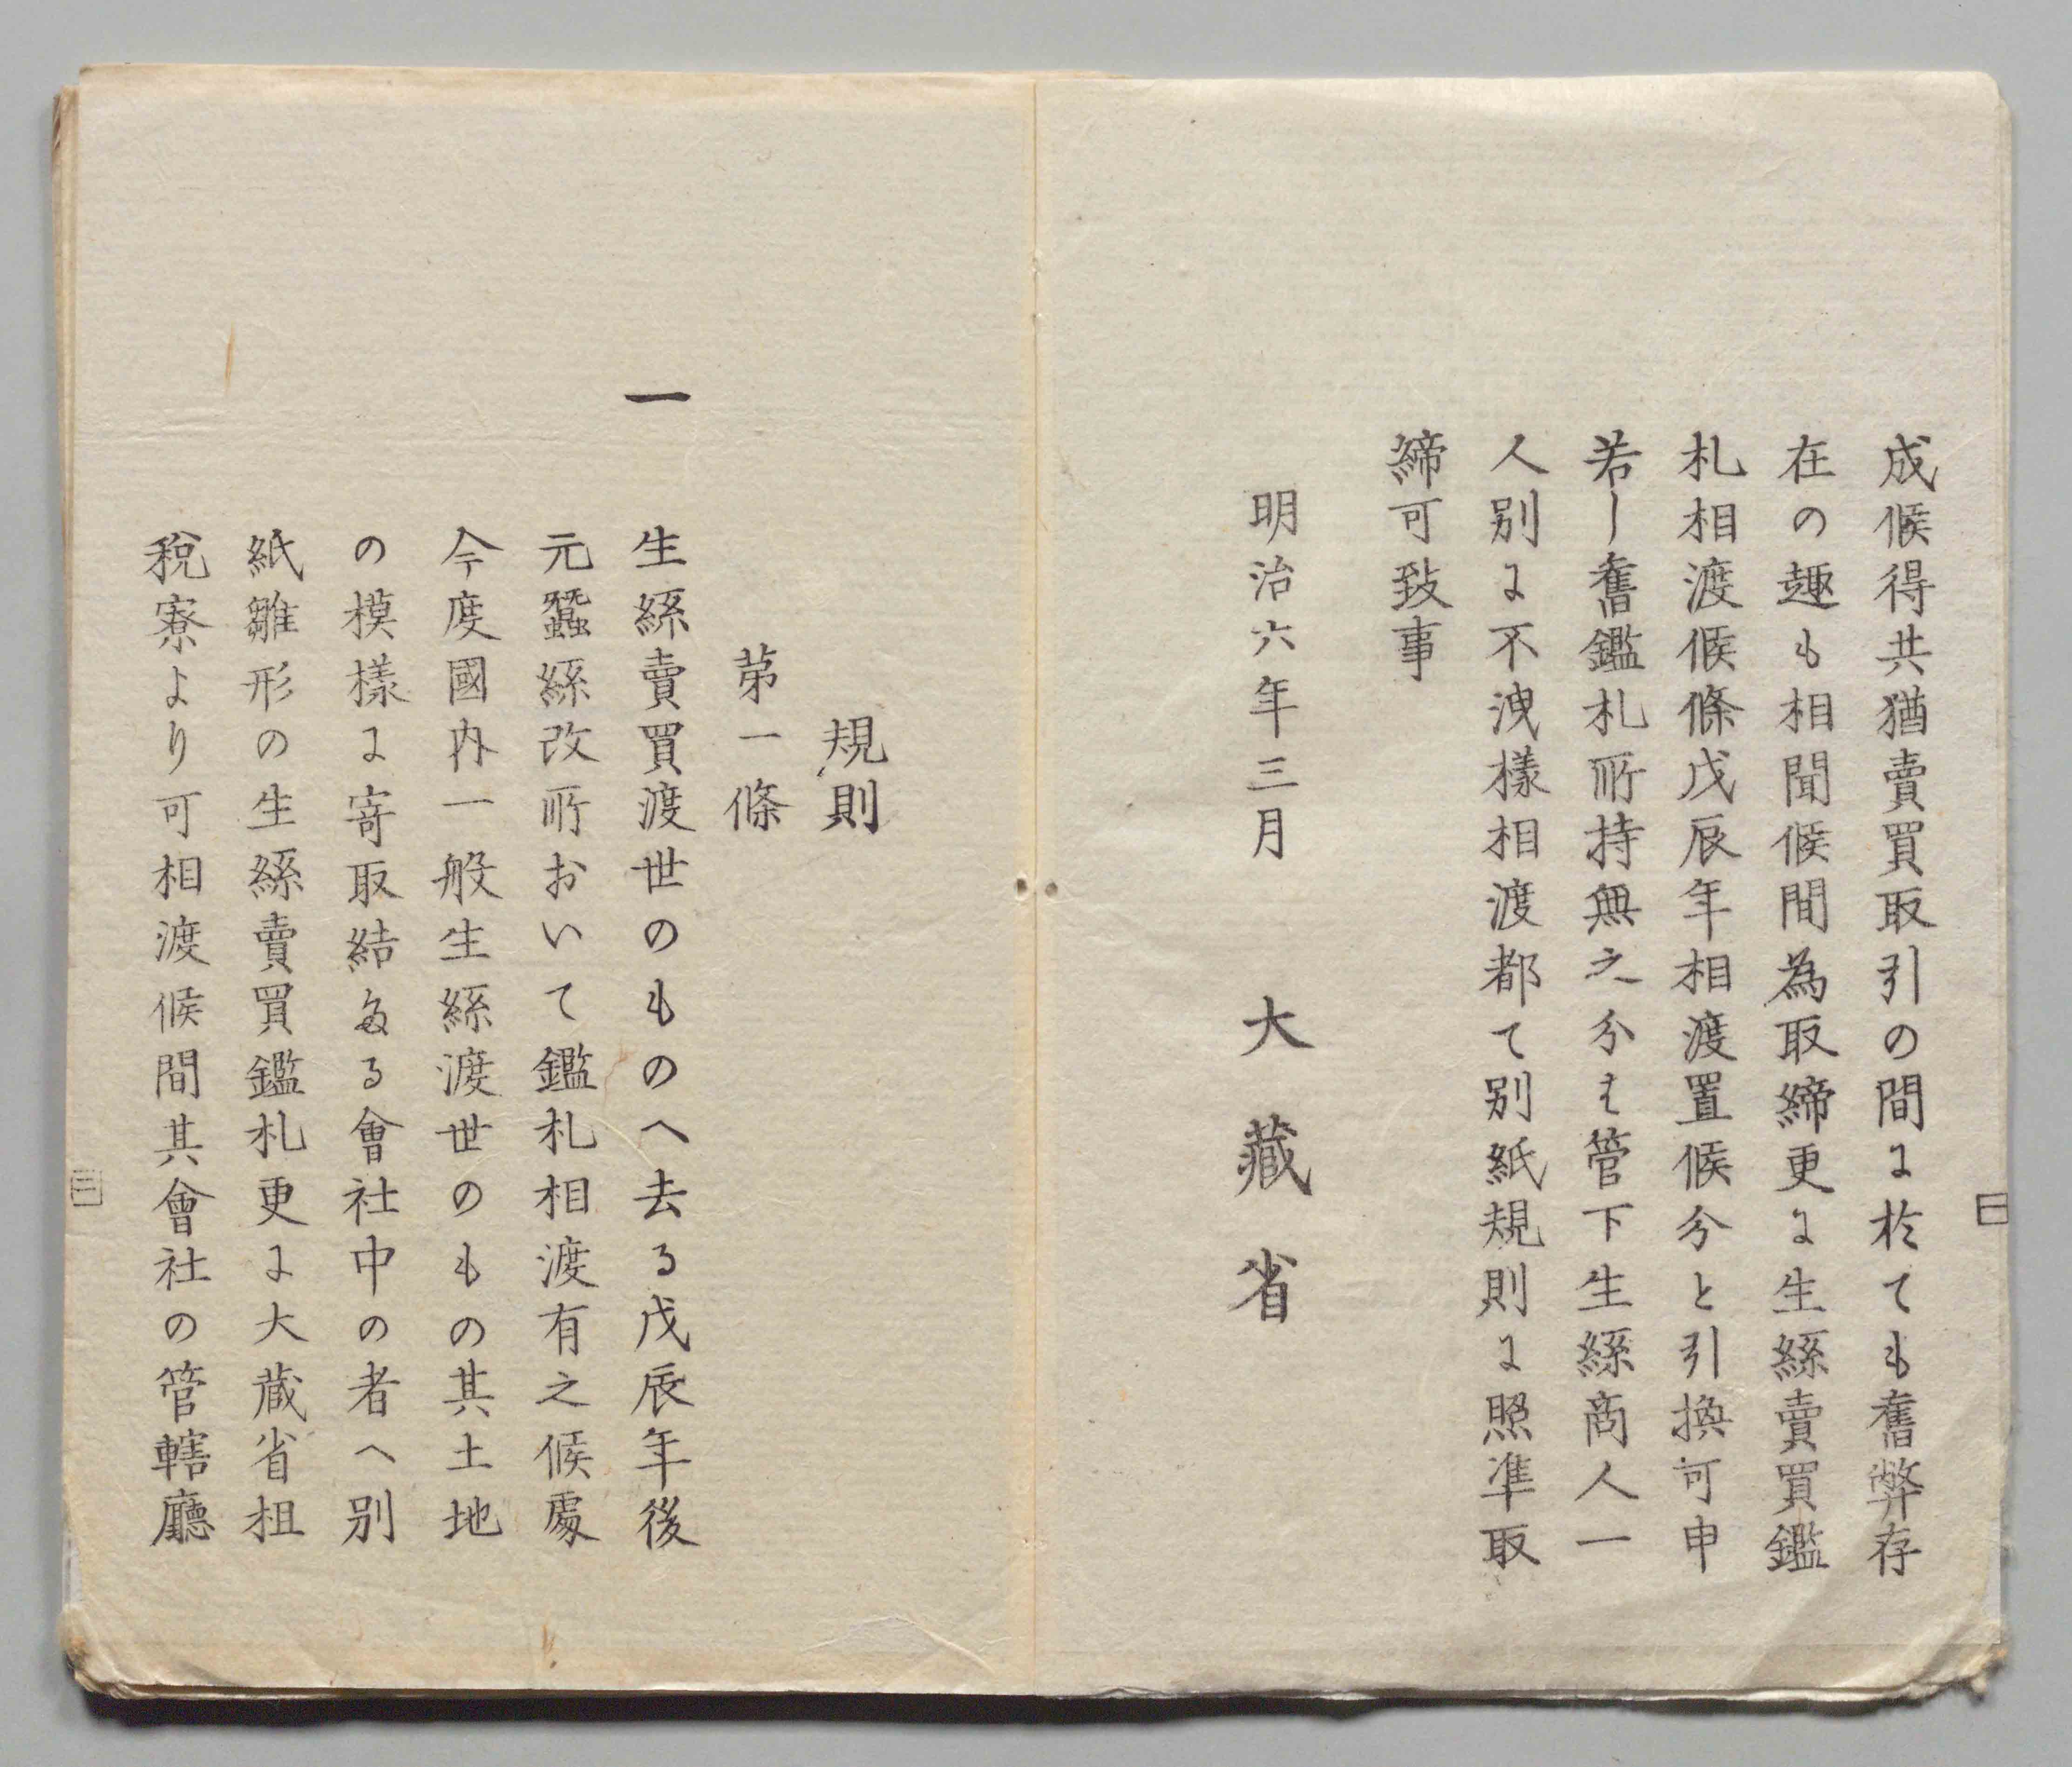 成候得共猶賣買取引の間に於ても舊弊存
在の趣も相聞候間為取締更に生絲賣買鑑
札相渡候條戊辰年相渡置候分と引換可申
若し舊鑑札所持無之分は管下生絲商人一
人別に不洩樣相渡都て別紙規則に照準取
締可致事
明治六年三月
大藏省
二
規則
第一條
一
生絲賣買渡世のものへ去る戊辰年後
元蠶絲改所おいて鑑札相渡有之候處
今度國内一般生絲渡世のもの其土地
の模樣に寄取結たる會社中の者へ別
紙雛形の生絲賣買鑑札更に大蔵省租
税寮より可相渡候間其會社の管轄廳
三